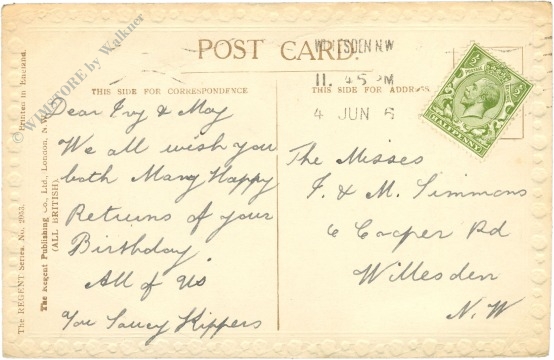 POST CARD.
WILLESDEN N.W
11. 45 PM
4 JUN 5
HALFPENNY
THIS SIDE FOR CORRESPONDENCE
THIS SIDE FOR ADDRESS
Dear Ivy & May
We all wish you
both Many Happy
Returns of your
Birthday.
All of Us
You Saucy Kippers
The Misses
I. & M. Simmons
6 Cooper Rd
Willesden
N.W
The REGENT Series. No. 2053.
Printed in England.
The Regent Publishing Co., Ltd., London, N.W.
(ALL BRITISH)
© WIMSTORE by Walkner